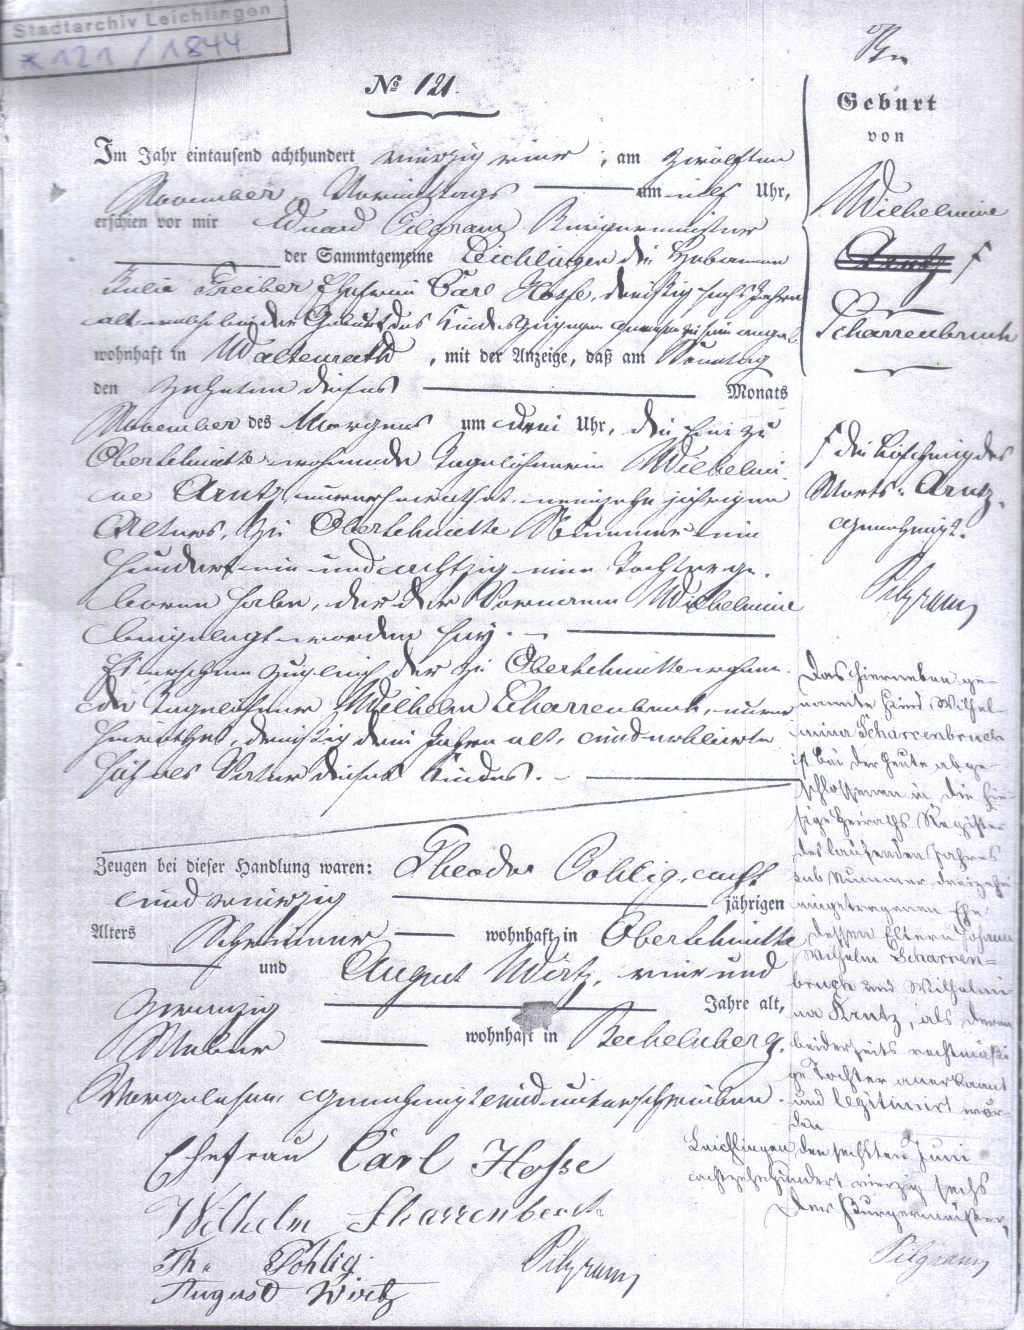 Stadtarchiv Leichlingen
*121/1844
№ 121.
Geburt
von
Wilhelmine
Arntz
Scharrenbruch
Im Jahr eintausend achthundert vierzig vier, am zwölften
November Vormittags um elf Uhr,
erschien vor mir Eduard Pilgram Bürgermeister
der Sammtgemeine Leichlingen die Hebamme
Julie Treiber Ehefrau Carl Hosse, dreißig sechs Jahre
alt welche bei der Geburt des Kindes zugegen gewesen zu sein angab
wohnhaft in, mit der Anzeige, daß am Sonntag
den zehnten dieses Monats
November des Morgens um drei Uhr, die hier zu
Oberschmitte wohnende Tagelöhnerin Wilhelmi-
ne Arntz, unverheirathet neunzehnjährigen
Alters, zu Oberschmitte Nummer ein
hundert ein und achtzig eine Tochter ge-
boren habe, der der Vorname Wilhelmine
beigelegt worden sey.
Es erschien zugleich der zu Oberschmitte wohnen-
de Tagelöhner Wilhelm Scharrenbruch, unver-
heirathet, dreißig drei Jahre alt, und erklärte
sich als Vater dieses Kindes.
Zeugen bei dieser Handlung waren: Theodor Pohlig, acht
und vierzig jährigen
Alters Schreiner wohnhaft in Oberschmitte
und August Wirtz, vier und
zwanzig Jahre alt,
Weber wohnhaft in Bechelnberg.
Vorgelesen, genehmigt und unterschrieben.
Ehefrau Carl Hosse
Wilhelm Scharrenbruch
Th. Pohlig
August Wirtz
Pilgram
die Löschung des
Worts: Arntz.
genehmigt.
Pilgram
Das hierneben ge-
nannte Kind Wilhel-
mina Scharrenbruch
ist bei der heute abge-
schlossenen in die hie-
sige Heiraths Register
des laufenden Jahres
sub Nummer dreizehn
eingetragenen Ehe
dessen Eltern Johann
Wilhelm Scharren-
bruch und Wilhelmi-
na Arntz, als deren
beiderseits rechtmäßi-
ge Tochter anerkannt
und legitimirt wor-
den
Leichlingen den sechsten Juni
achtzehnhundert vierzig sechs
Der Bürgermeister,
Pilgram